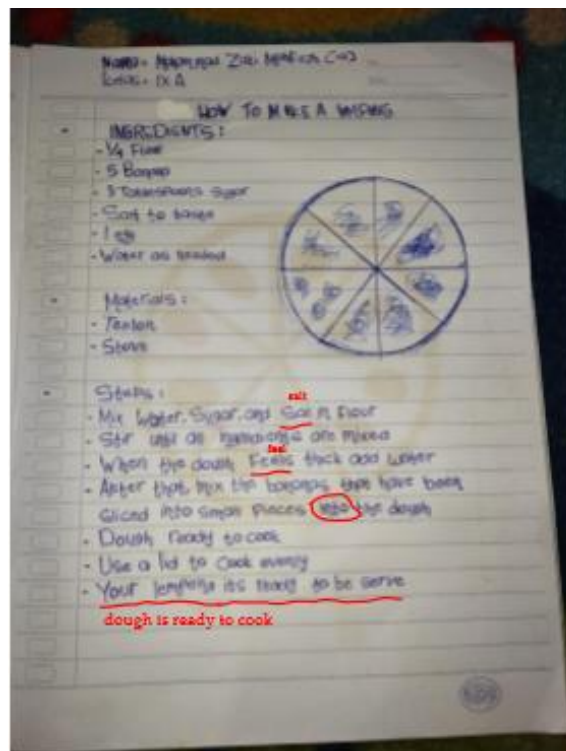 HOW TO MAKE A
INGREDIENTS :
- 1/4 Flour
- 5
- 3 Tablespoons Sugar
- Salt to taste
- 1 egg
- Water as needed
Materials :
- Teflon
- Stove
Steps :
salt
- Mix Water, Sugar, and in Flour
- Stir until all are mixed
feel
- When the dough Feels thick add water
- After that, mix the bananas that have been
sliced into small pieces into the dough
- Dough ready to cook
- Use a lid to cook evenly
- Your its ready to be serve
dough is ready to cook